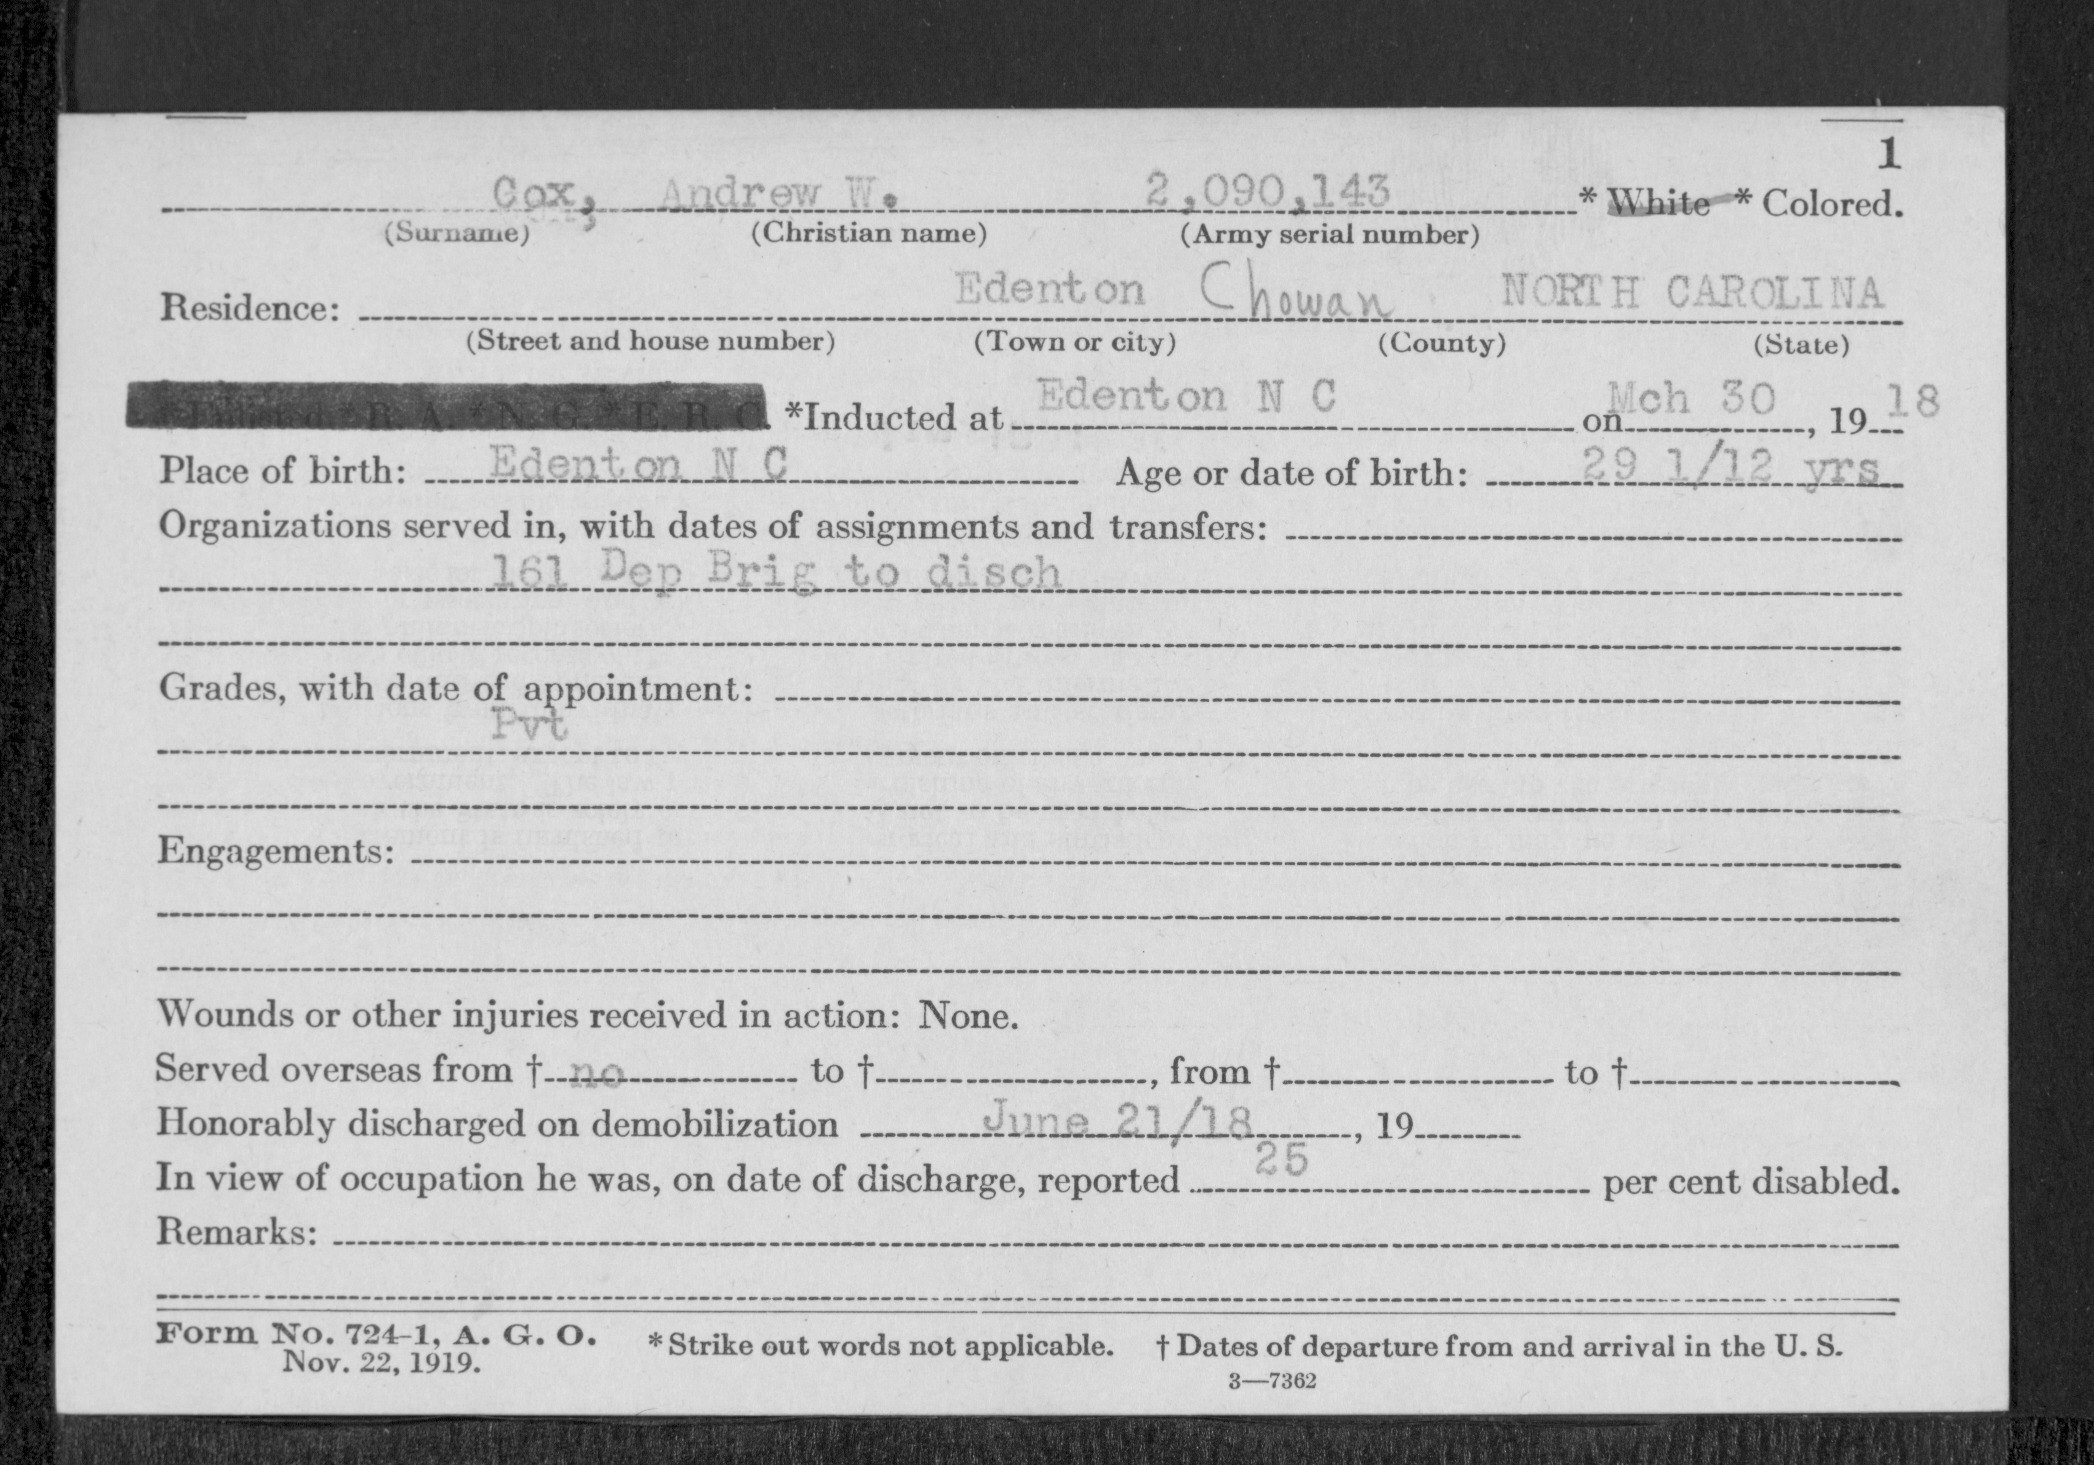 1
Cox, Andrew W. 2,090,143 * White * Colored.
(Surname) (Christian name) (Army serial number)
Residence: Edenton Chowan NORTH CAROLINA
(Street and house number) (Town or city) (County) (State)
Enlisted * R. A. * N. G. * E. R. C. *Inducted at Edenton N C on Mch 30, 19 18
Place of birth: Edenton N C Age or date of birth: 29 1/12 yrs
Organizations served in, with dates of assignments and transfers:
161 Dep Brig to disch
Grades, with date of appointment:
Pvt
Engagements:
Wounds or other injuries received in action: None.
Served overseas from † no to †, from † to †
Honorably discharged on demobilization June 21/18, 19
In view of occupation he was, on date of discharge, reported 25 per cent disabled.
Remarks:
Form No. 724-1, A. G. O. * Strike out words not applicable. † Dates of departure from and arrival in the U. S.
Nov. 22, 1919.
3—7362